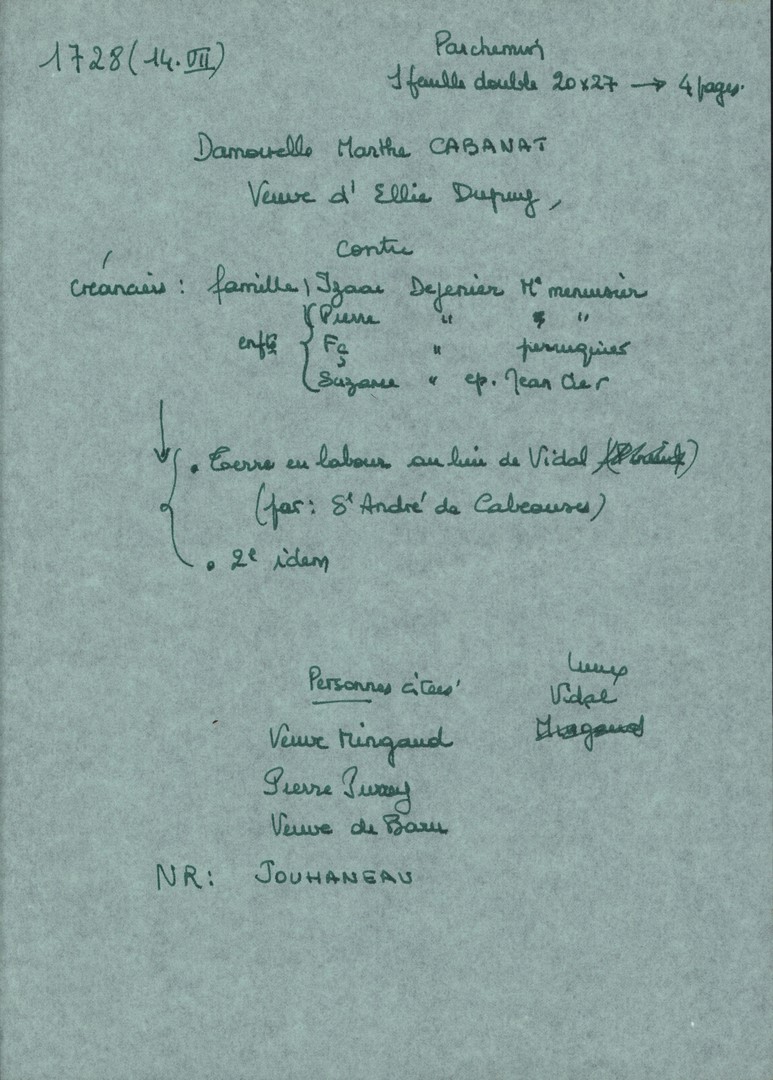 1728 (14.VII)
Parchemin
1 feuille double 20x27 → 4 pages.
Damoiselle Marthe CABANAT
Veuve d' Ellie Dupuy,
contre
créanciers : famille Izaac Dejenier Me menuisier
Pierre " "
enfts Fç " perruquier
Suzanne " ep. Jean
. Terre en labour au lieu de Vidal
(par : St André de Cabeauses)
. 2e idem
Personnes citées
Lieux
Vidal
Veuve Mingaud
Pierre
Veuve de Baru
NR: JOUHANEAU